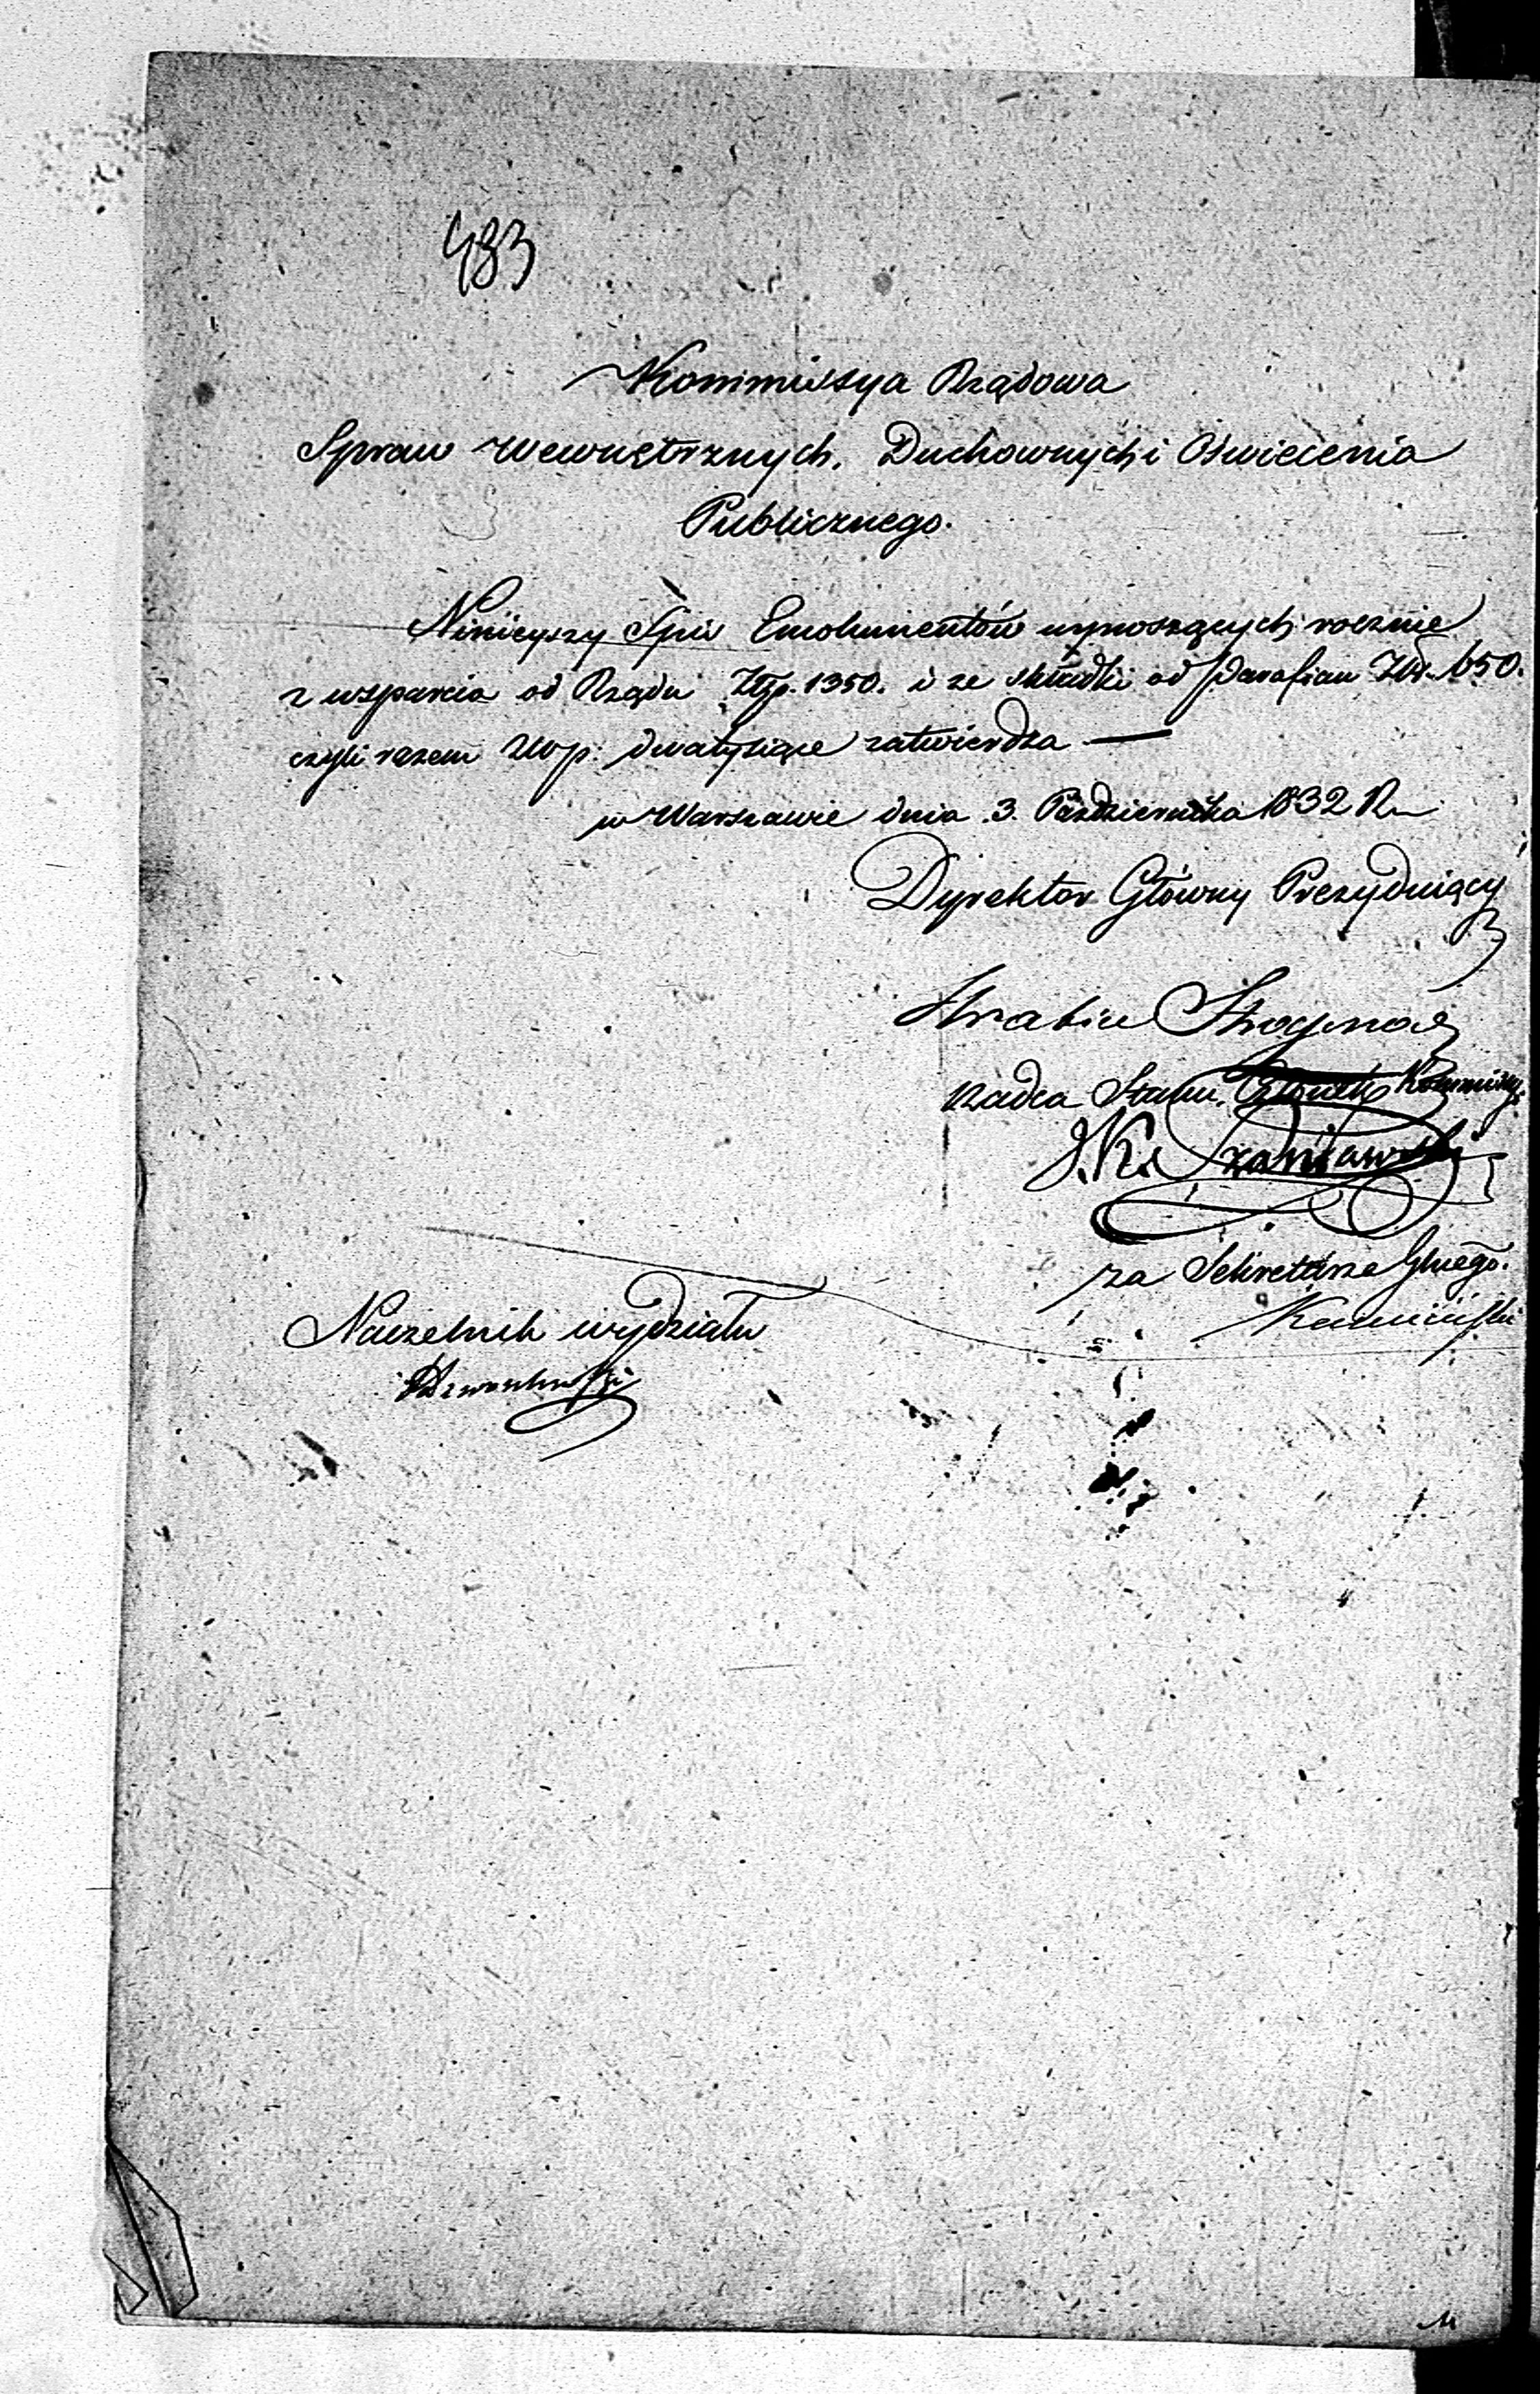 483
Kommissya Rządowa
Spraw Wewnętrznych, Duchownych i Oświecenia
Publicznego.
Ninieyszy Spis Emolumentów wynoszących rocznie
z wsparcia od Rządu Złp. 1350. i ze składki od Parafian Złp. 650.
czyli razem Złp: dwatysiące zatwierdza —
w Warszawie dnia 3. Października 1832 R
Dyrektor Główny Prezyduiący
Hrabia Strogonow
Radca Stanu, Członek Kommissyi
J. K. Szaniawski
za Sekretarza Głnego.
Kamiński
Naczelnik wydziału